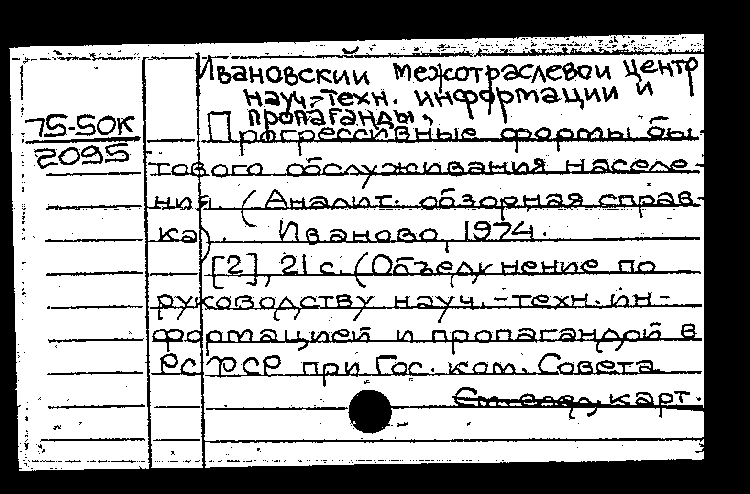 Ивановский межотраслевой центр
науч.-техн. информации и
пропаганды,
75-50к
2095
Прогрессивные формы бы-
тового обслуживания населе-
ния. (Аналит. обзорная справ-
ка). Иваново, 1974.
[2], 21 с. (Объединение по
руководству науч.-техн. ин-
формацией и пропагандой в
РСФСР при Гос. ком. Совета
См. след. карт.